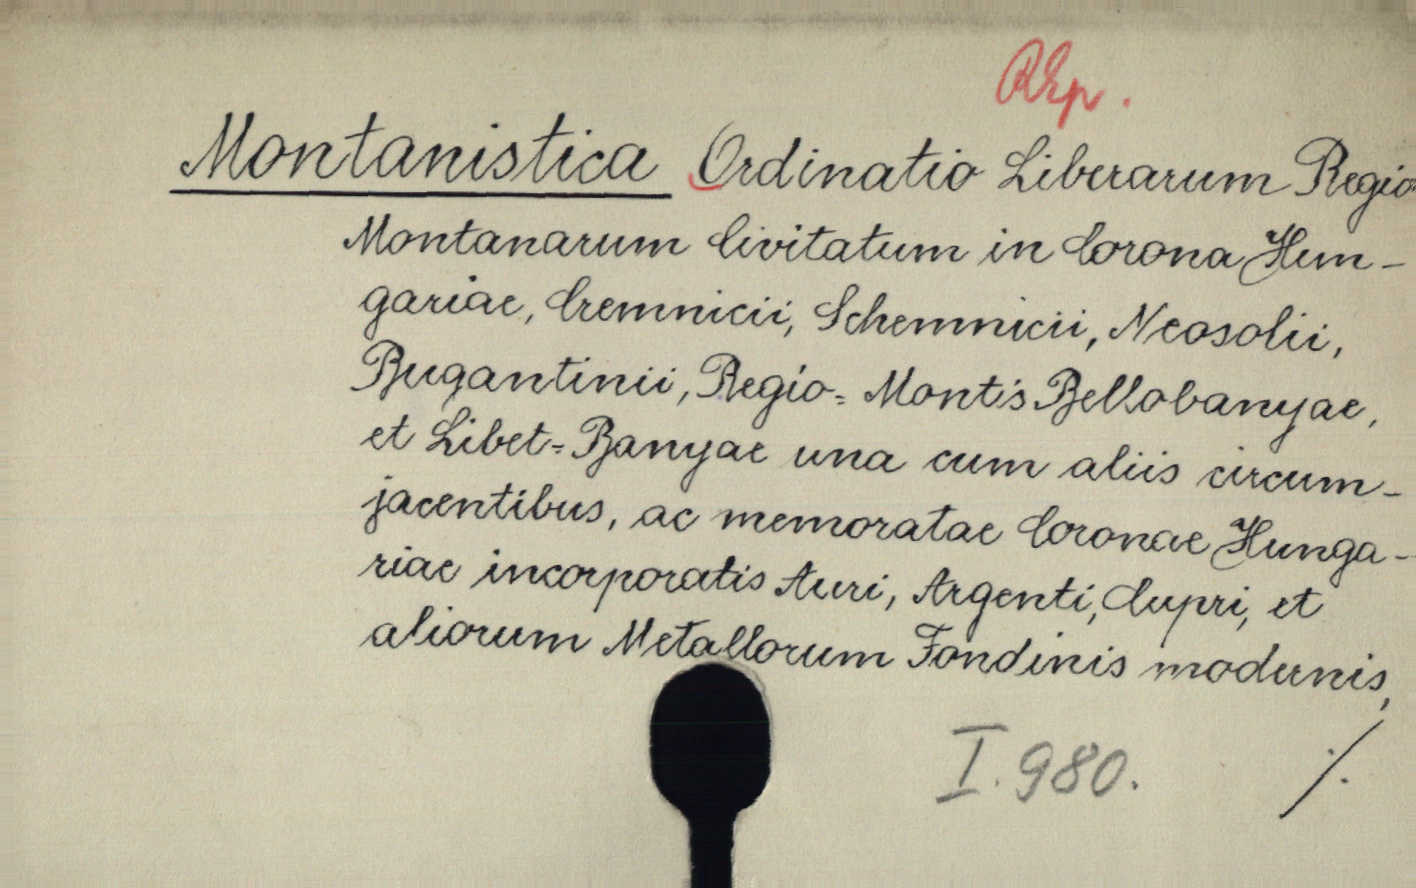 Montanistica Ordinatio Liberarum Regio
Montanarum Civitatum in Corona Hun-
gariae, Cremnicii, Schemnicii, Neosolii,
Bugantinii, Regio= Montis Bellobanyae,
et Libet=Banyae una cum aliis circum-
jacentibus, ac memoratae Coronae Hunga-
riae incorporatis Auri, Argenti, Cupri, et
aliorum Metallorum Fondinis modernis,
I. 980. ./.